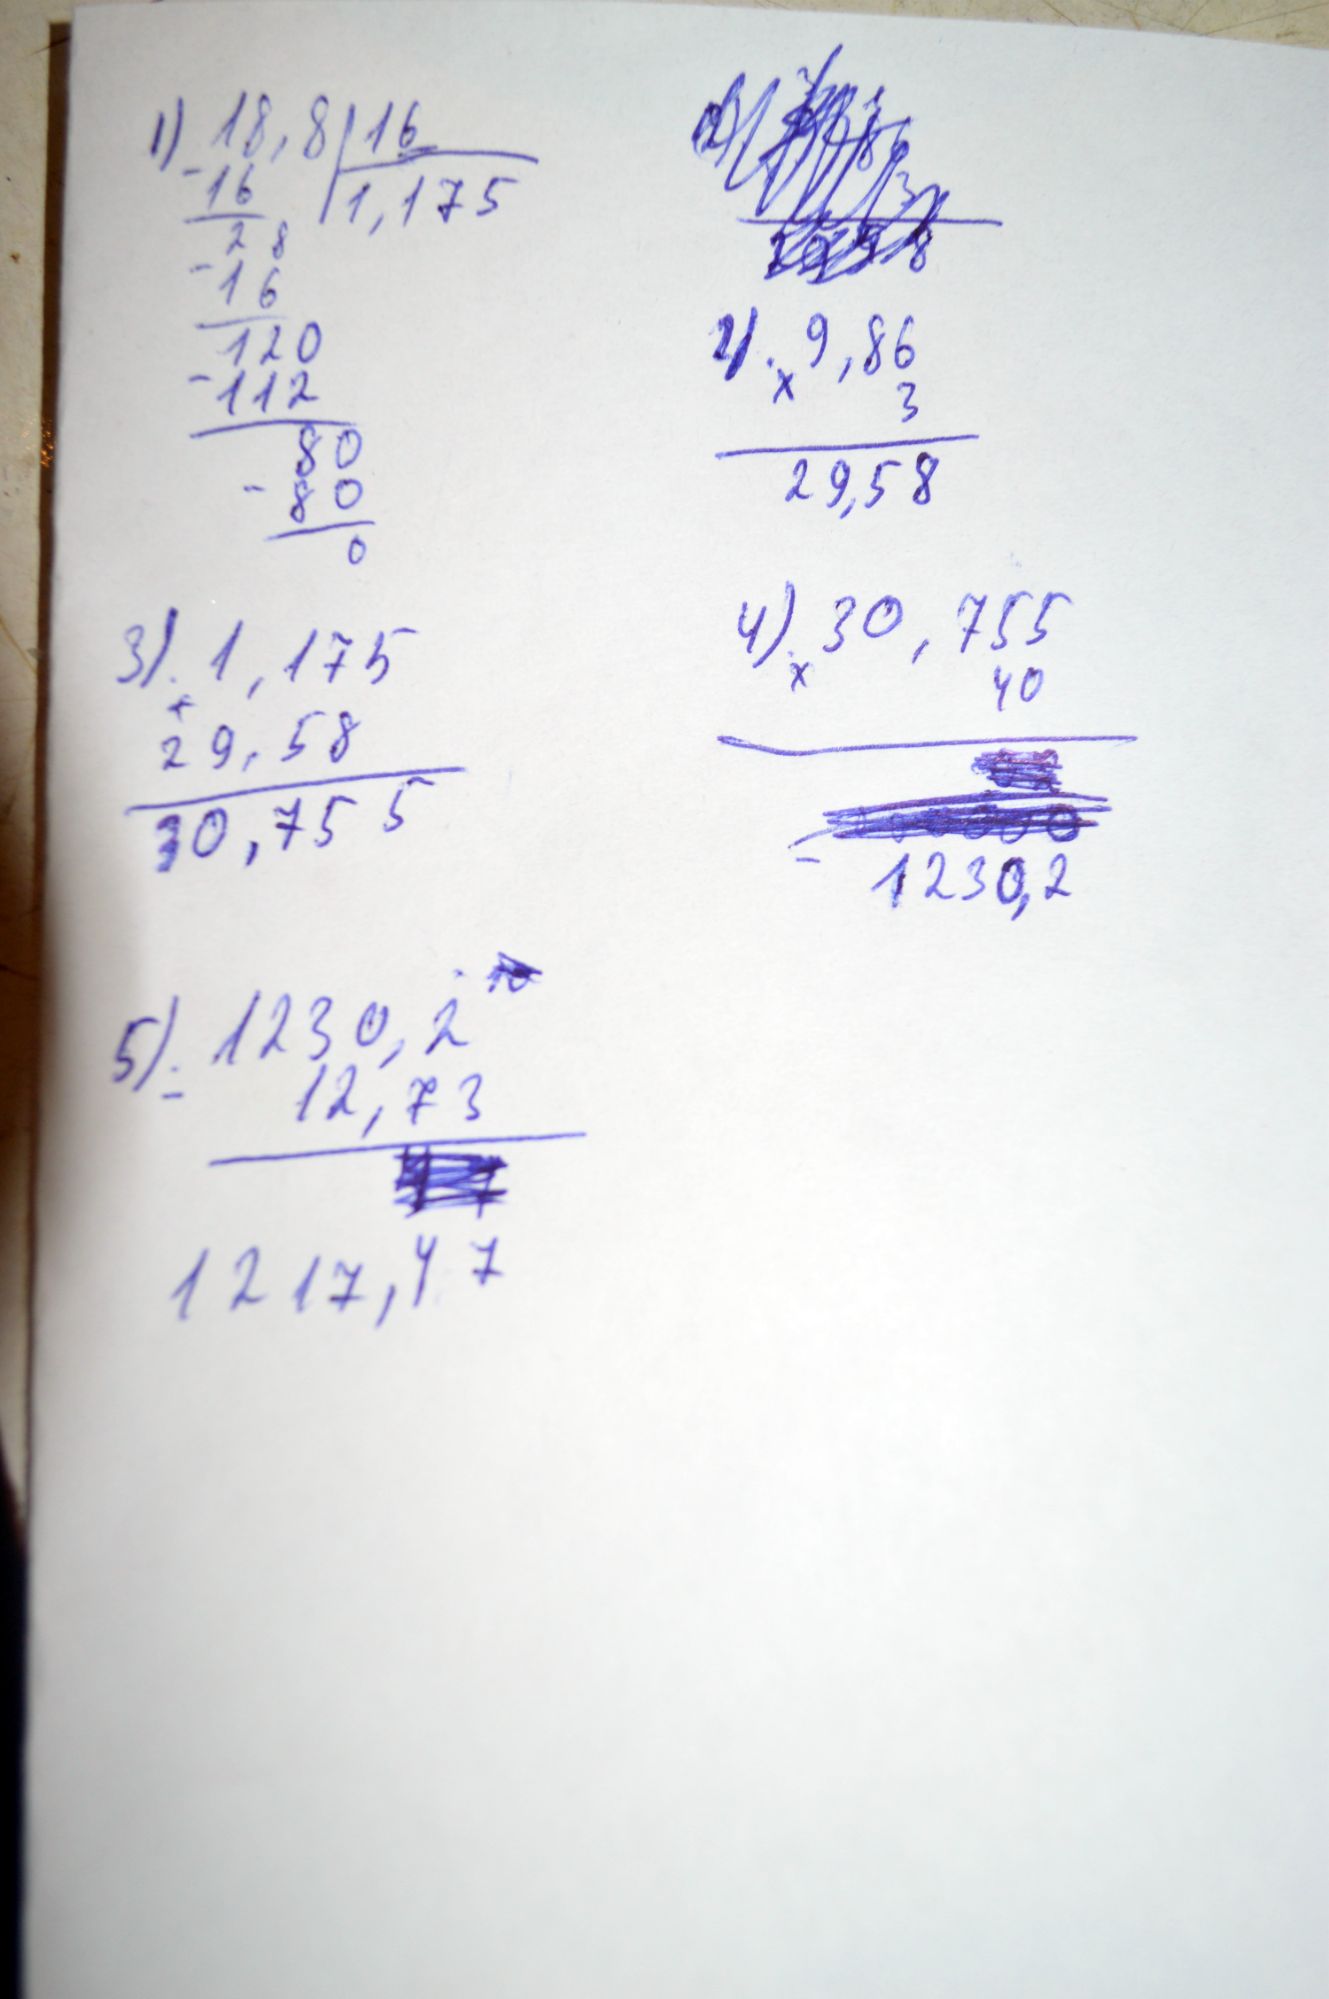 1) 18,8 | 16
- 16 | 1,175
28
- 16
120
- 112
80
- 80
0
2) . 9,86
x 3
29,58
3) . 1,175
+
29,58
30,755
4) . 30,755
x 40
- 1230,2
5) . 1230,2
- 12,73
1217,47